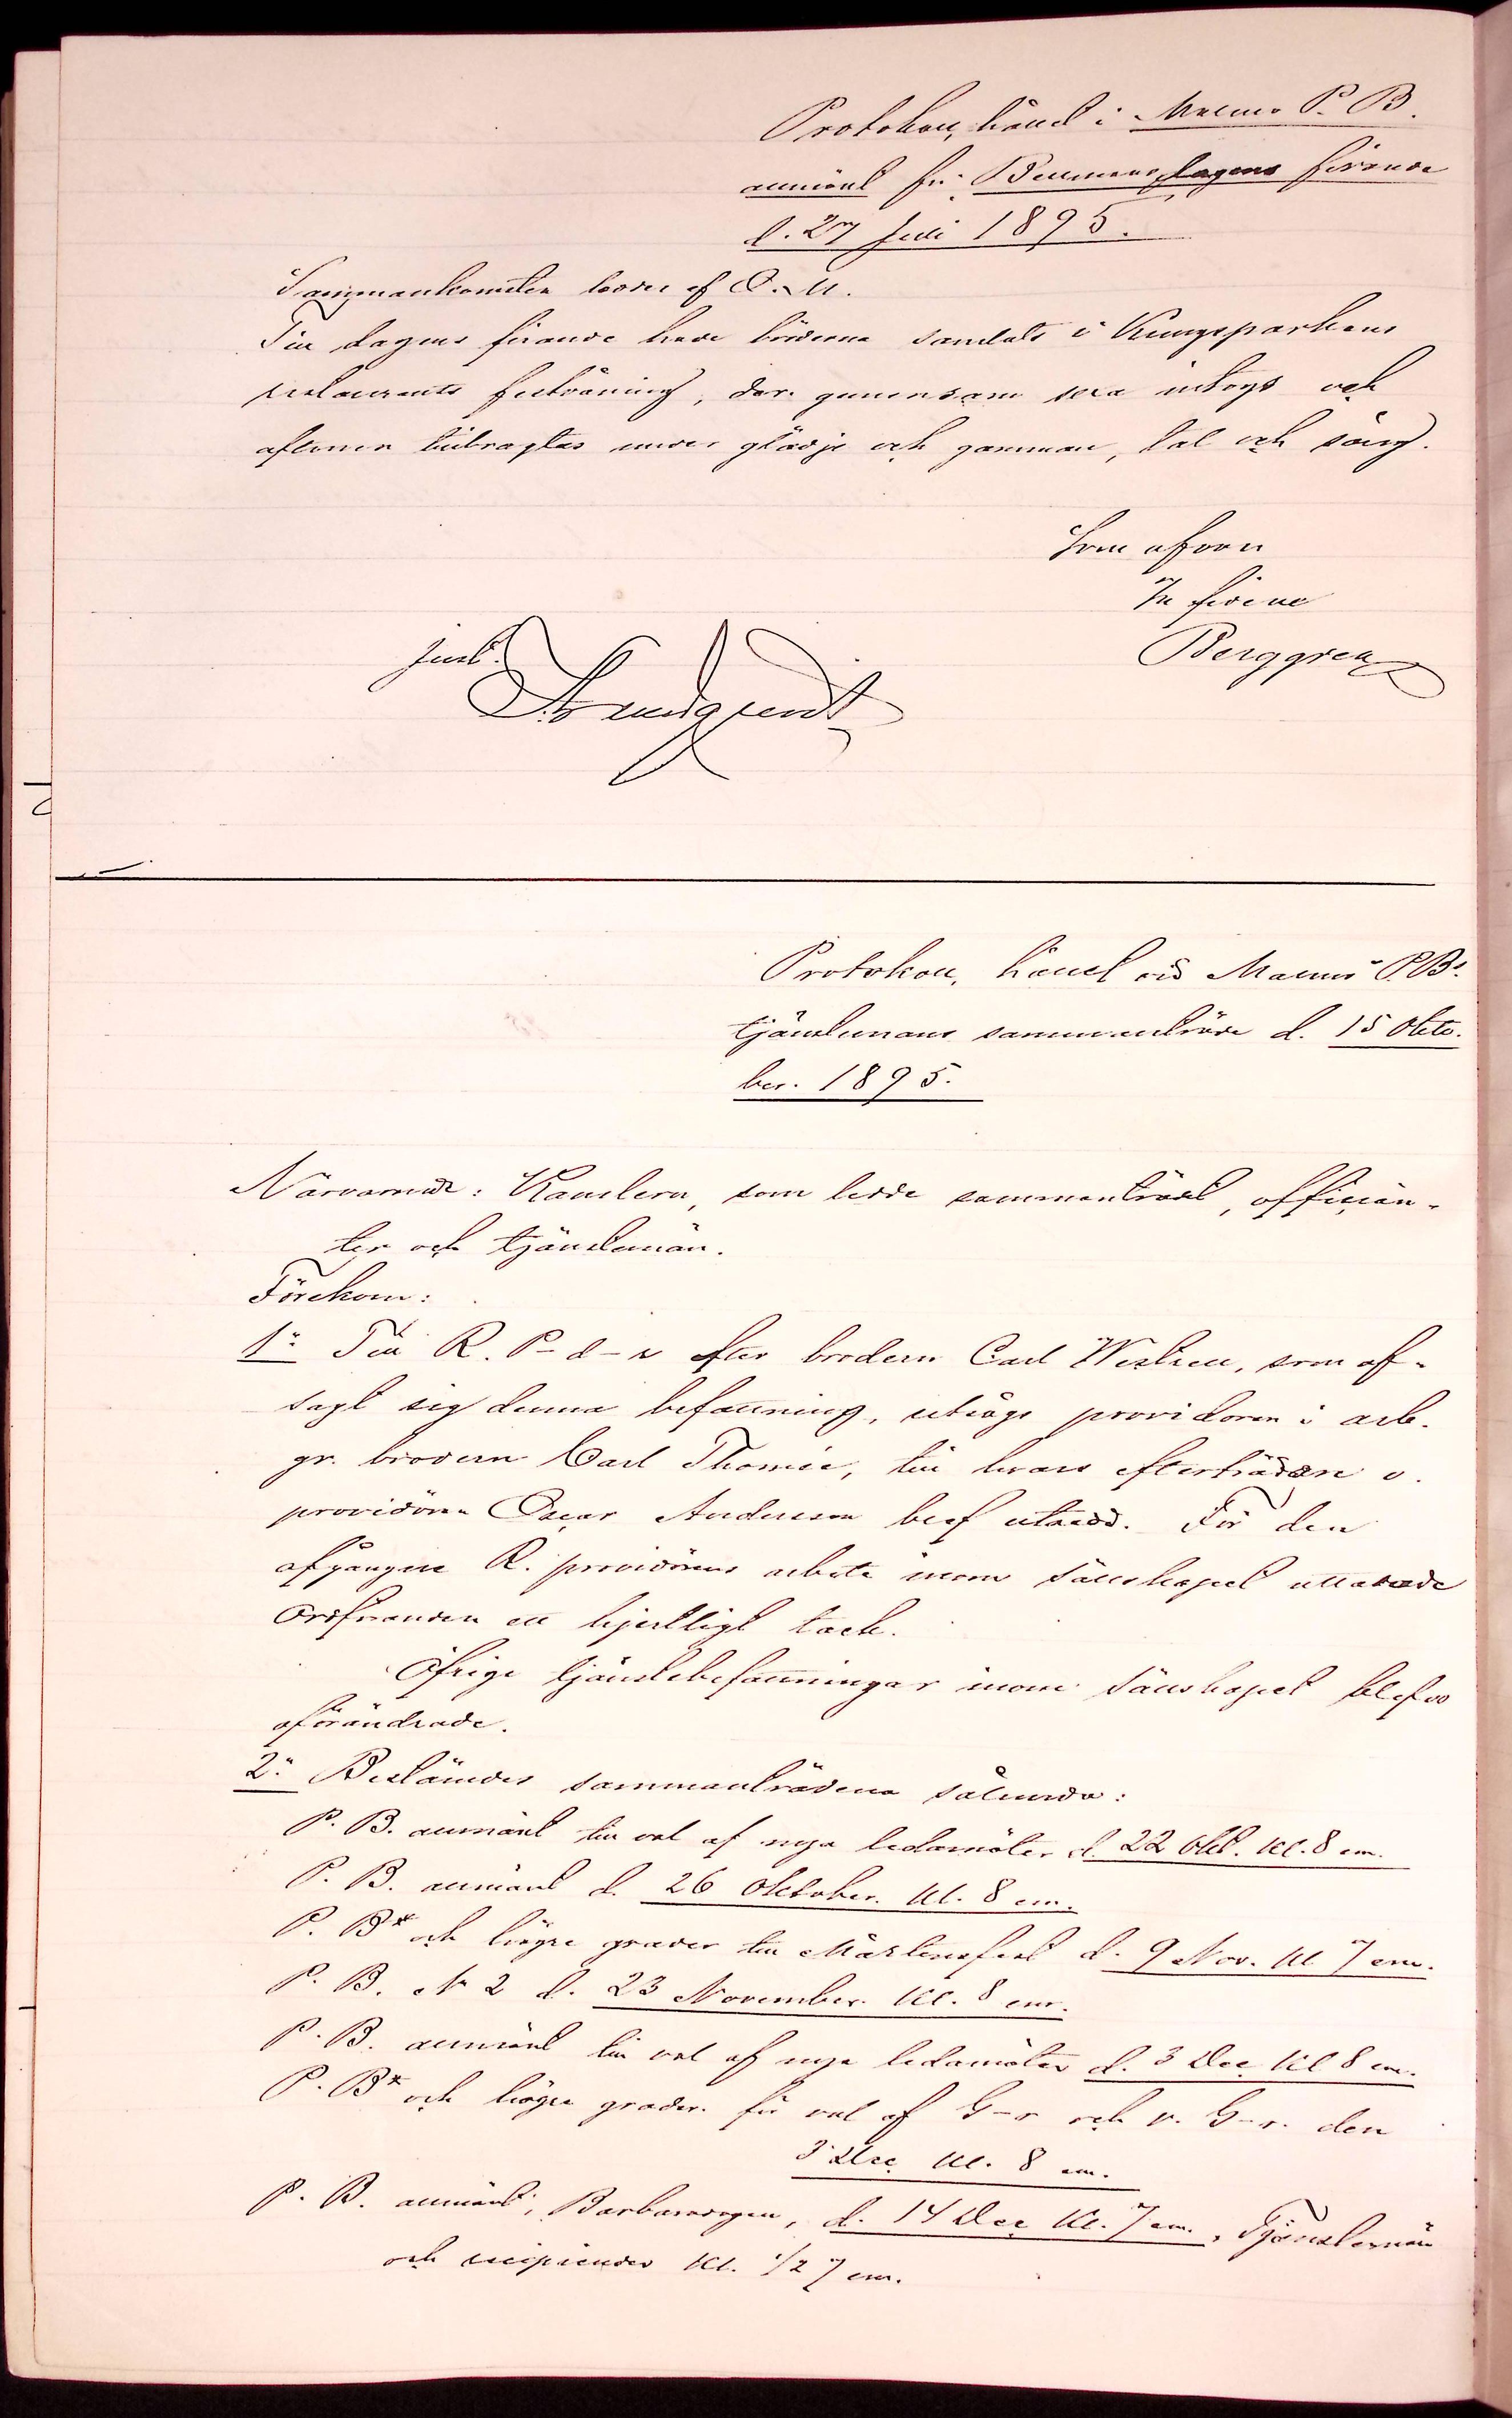 Protokoll, hållet i Malmö P. B.
allmänt för Bellmansdagens firande
d. 27 Juli 1895.
Sammankomsten leddes af O. M.
Till dagens firande hade bröderna samlats i Kungsparkens
restaurants festvåning, der gemensam sexa intogs och
aftonen tillbragtes under glädje och gamman, tal och sång.
Som ofvan
In fidem
Berggren
Just.
Protokoll, hållet vid Malmö P.Bs.
tjänstemäns sammanträde d. 15 Okto-
ber. 1895.
Närvarande: Kanslern, som ledde sammanträdet, offician-
ter och tjänstemän.
Förekom:
1o Till R. P-d-r efter brodern Carl Westrell, som af-
sagt sig denna befattning, utsågs providoren i arb.
gr. brodern Carl Thomée, till hvars efterträdare v.
providören Oscar Andersson blef utsedd. För den
afgångne R. providörens arbete inom Sällskapet uttalade
Ordföranden ett hjertligt tack.
Öfrige tjänstebefattningar inom Sällskapet blefvo
oförändrade.
2o Bestämdes sammanträdena sålunda:
P. B. allmänt till val af nya ledamöter d. 22 Okt. Kl. 8 em.
P. B. allmänt d. 26 Oktober. Kl. 8 em.
P. B* och högre grader till Mårtensfest d. 9 Nov. Kl. 7 em.
P. B. N 2 d. 23 November. Kl. 8 em.
P. B. allmänt till val af nya ledamöter d. 3 Dec Kl 8 em.
P. B* och högre grader för val af G-r och v. G-r. den
3 Dec. Kl. 8 em.
P. B. allmänt, Barbaradagen, d. 14 Dec Kl. 7 em. Tjänstemän
och recipiender Kl. 1/2 7 em.